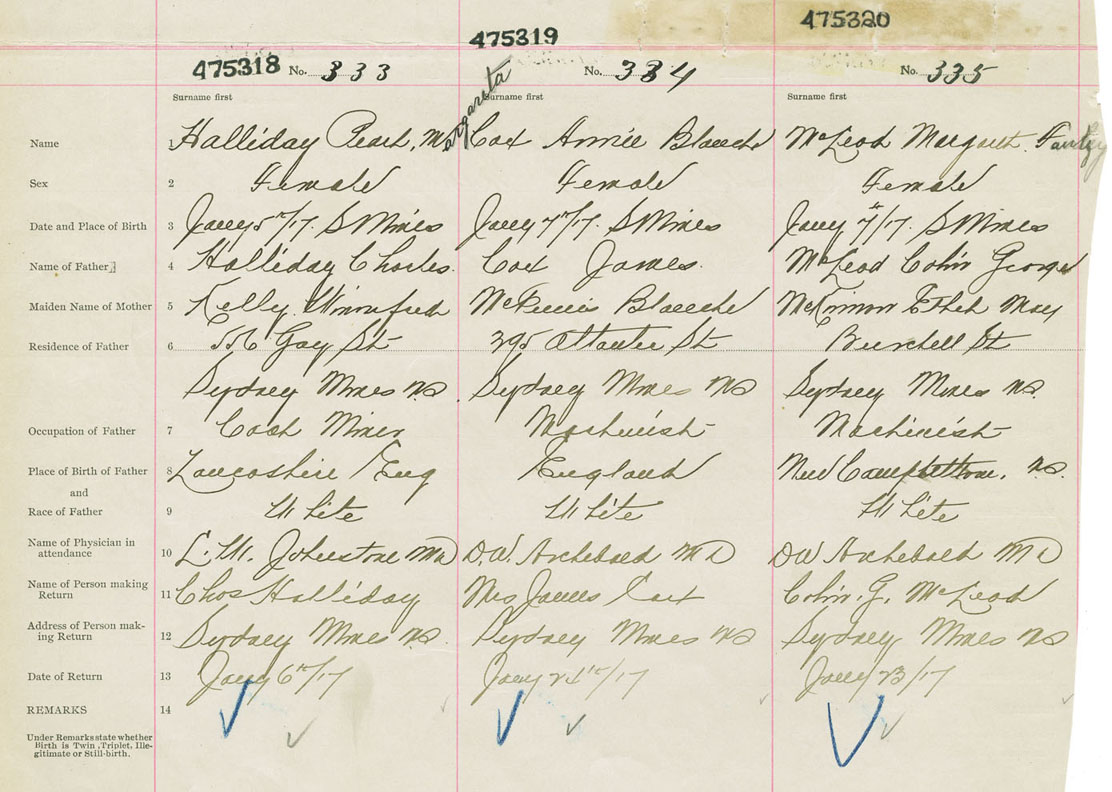 475318 No. 333
475319 No. 334
475320 No. 335
Surname first
Surname first
Surname first
Name 1 Halliday Pearl, Margareta Cox Annie Blanche McLeod Margaret
Sex 2 Female Female Female
Date and Place of Birth 3 Jany 5th/17. S Mines Jany 7th/17. S Mines Jany 7/17. S Mines
Name of Father 4 Halliday Charles. Cox James. McLeod Colin George
Maiden Name of Mother 5 Kelly Winnifred Blanche McKinnon Ethel May
Residence of Father 6 Gay St 395 Atlantic St Burchell St
Sydney Mines NS Sydney Mines NS Sydney Mines NS.
Occupation of Father 7 Coal Miner Machinist Machinist
Place of Birth of Father 8 Lancashire Eng England New Campbellton, NS.
and
Race of Father 9 White White White
Name of Physician in
attendance 10 L. W. Johnstone MD D.W. Archibald MD DW Archibald MD
Name of Person making
Return 11 Chas Halliday Mrs James Cox Colin. G. McLeod
Address of Person mak-
ing Return 12 Sydney Mines NS. Sydney Mines NS Sydney Mines NS
Date of Return 13 Jany 6th/17 Jany 24th/17 Jany 23/17
REMARKS 14
Under Remarks state whether
Birth is Twin, Triplet, Ille-
gitimate or Still-birth.